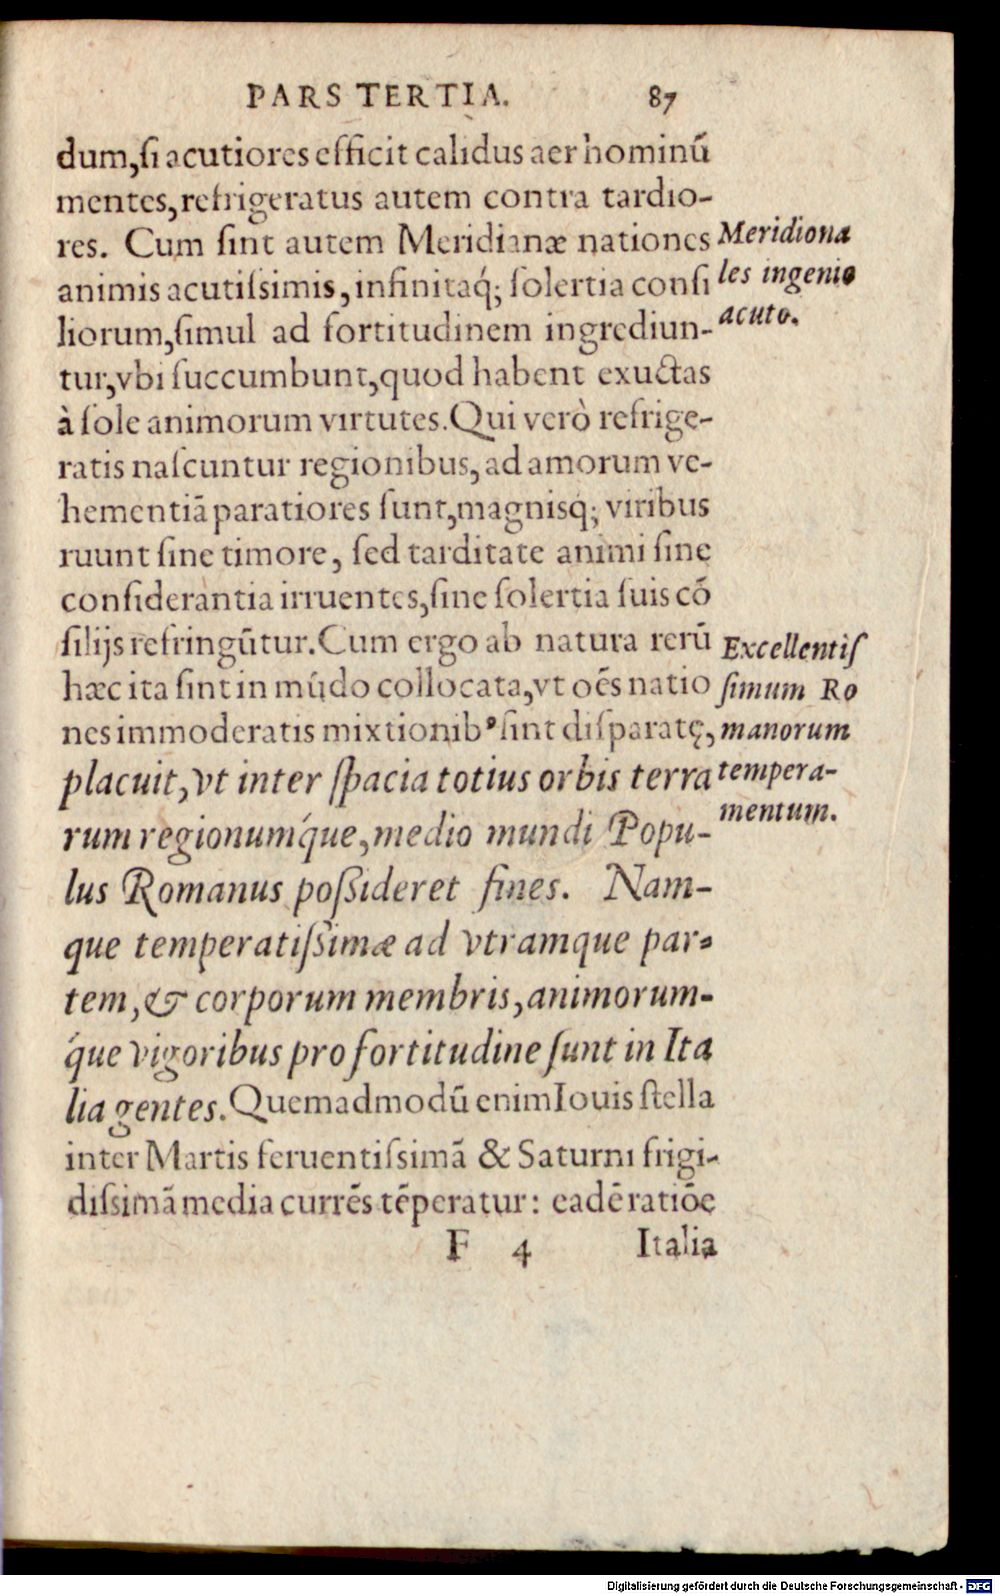 PARS TERTIA. 87
dum,ſi acutiores efficit calidus aer hominū
mentes,refrigeratus autem contra tardio-
res. Cum ſint autem Meridianæ nationes
animis acutiſsimis, infinitaq́; ſolertia conſi
liorum,ſimul ad fortitudinem ingrediun-
tur,vbi ſuccumbunt,quod habent exuctas
à ſole animorum virtutes. Qui verò refrige-
ratis naſcuntur regionibus, ad amorum ve-
hementiā paratiores ſunt,magnisq́; viribus
ruunt ſine timore, ſed tarditate animi ſine
conſiderantia irruentes,ſine ſolertia ſuis cō
ſilijs refringūtur. Cum ergo ab natura rerū
hæc ita ſint in mūdo collocata,vt oēs natio
nes immoderatis mixtionibꝰ ſint diſparatę,
placuit, vt inter ſpacia totius orbis terra
rum regionumq́ue, medio mundi Popu-
lus Romanus poßideret fines. Nam-
que temperatißimæ ad vtramque par-
tem, & corporum membris, animorum-
q́ue vigoribus pro fortitudine ſunt in Ita
lia gentes. Quemadmodū enim Iouis ſtella
inter Martis feruentiſsimā & Saturni frigi-
diſsimā media currēs tēperatur: eadē ratiōe
F 4 Italia
Meridiona
les ingenio
acuto.
Excellentiſ
ſimum Ro
manorum
tempera-
mentum.
Digitalisierung gefördert durch die Deutsche Forschungsgemeinschaft - DFG